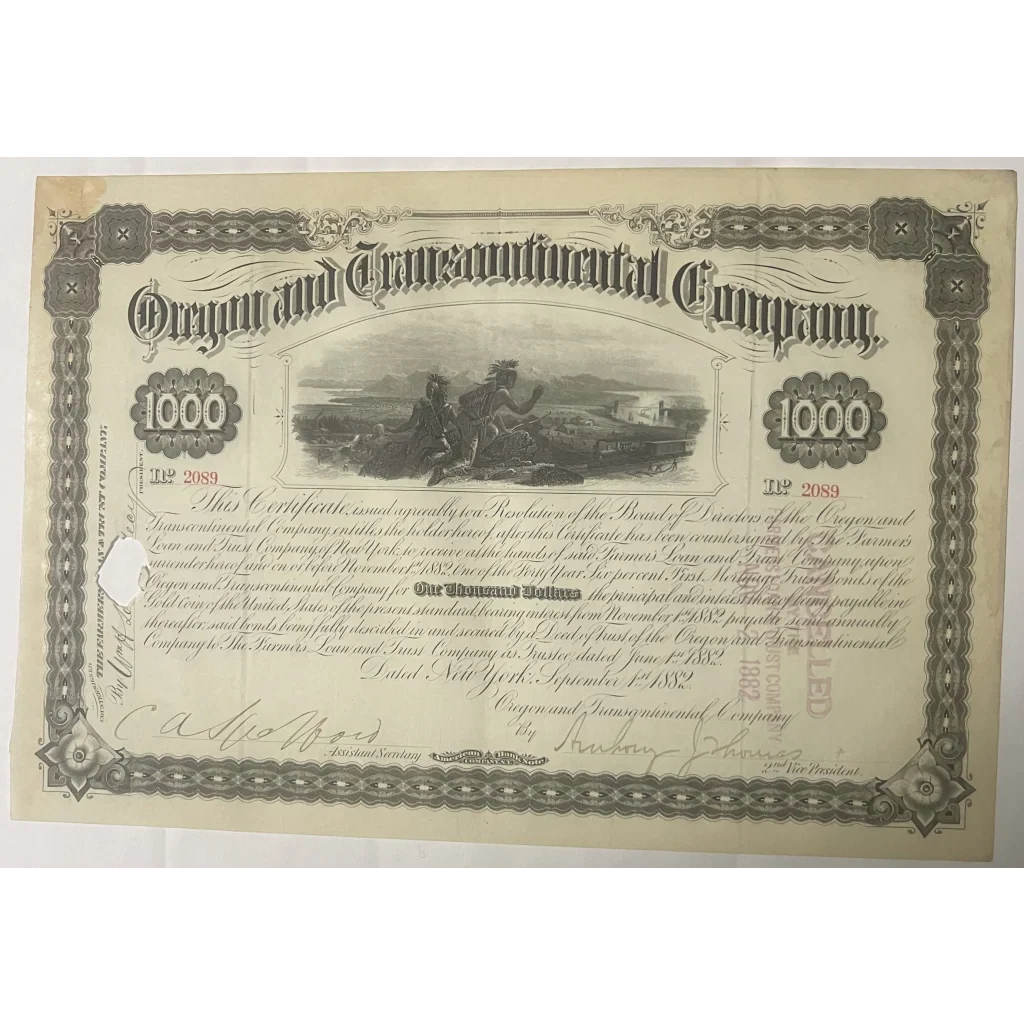 Oregon and Transcontinental Company.
1000
1000
No 2089
No 2089
This Certificate, issued agreeably to a Resolution of the Board of Directors of the Oregon and
Transcontinental Company, entitles the holder hereof, after this Certificate has been countersigned by The Farmers
Loan and Trust Company, of New York, to receive at the hands of said Farmers Loan and Trust Company, upon
surrender hereof, and on or before November 1st 1882, One of the Forty Year Six per cent First Mortgage Trust Bonds of the
Oregon and Transcontinental Company for One Thousand Dollars the principal and interest thereof being payable in
Gold Coin of the United States of the present standard, bearing interest from November 1st 1882 payable semi-annually
thereafter, said bonds being fully described in and secured by a Deed of Trust of the Oregon and Transcontinental
Company to The Farmers Loan and Trust Company as Trustee, dated June 1st 1882.
Dated New York, September 1st 1882.
Oregon and Transcontinental Company
By Anthony J Thomas
2nd Vice President.
Assistant Secretary
American Bank Note
COMPANY
COUNTERSIGNED
THE FARMERS LOAN & TRUST COMPANY,
By
PRESIDENT.
CANCELLED
TRUST COMPANY
1882